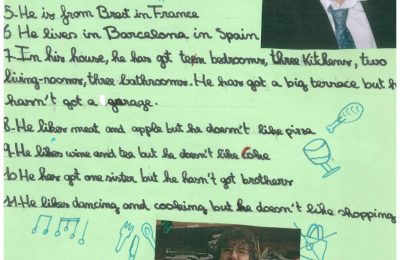 5-He is from Brest in France
6 He lives in Barcelona in Spain
7-In his house, he has got ten bedrooms, three kitchens, two
living-rooms, three bathrooms. He has got a big terrace but he
hasn't got a garage.
8-He likes meat and apple but he doesn't like pizza
9-He likes wine and tea but he doesn't like Coke
10 He has got one sister but he hasn't got brothers
11-He likes dancing and cooking but he doesn't like shopping